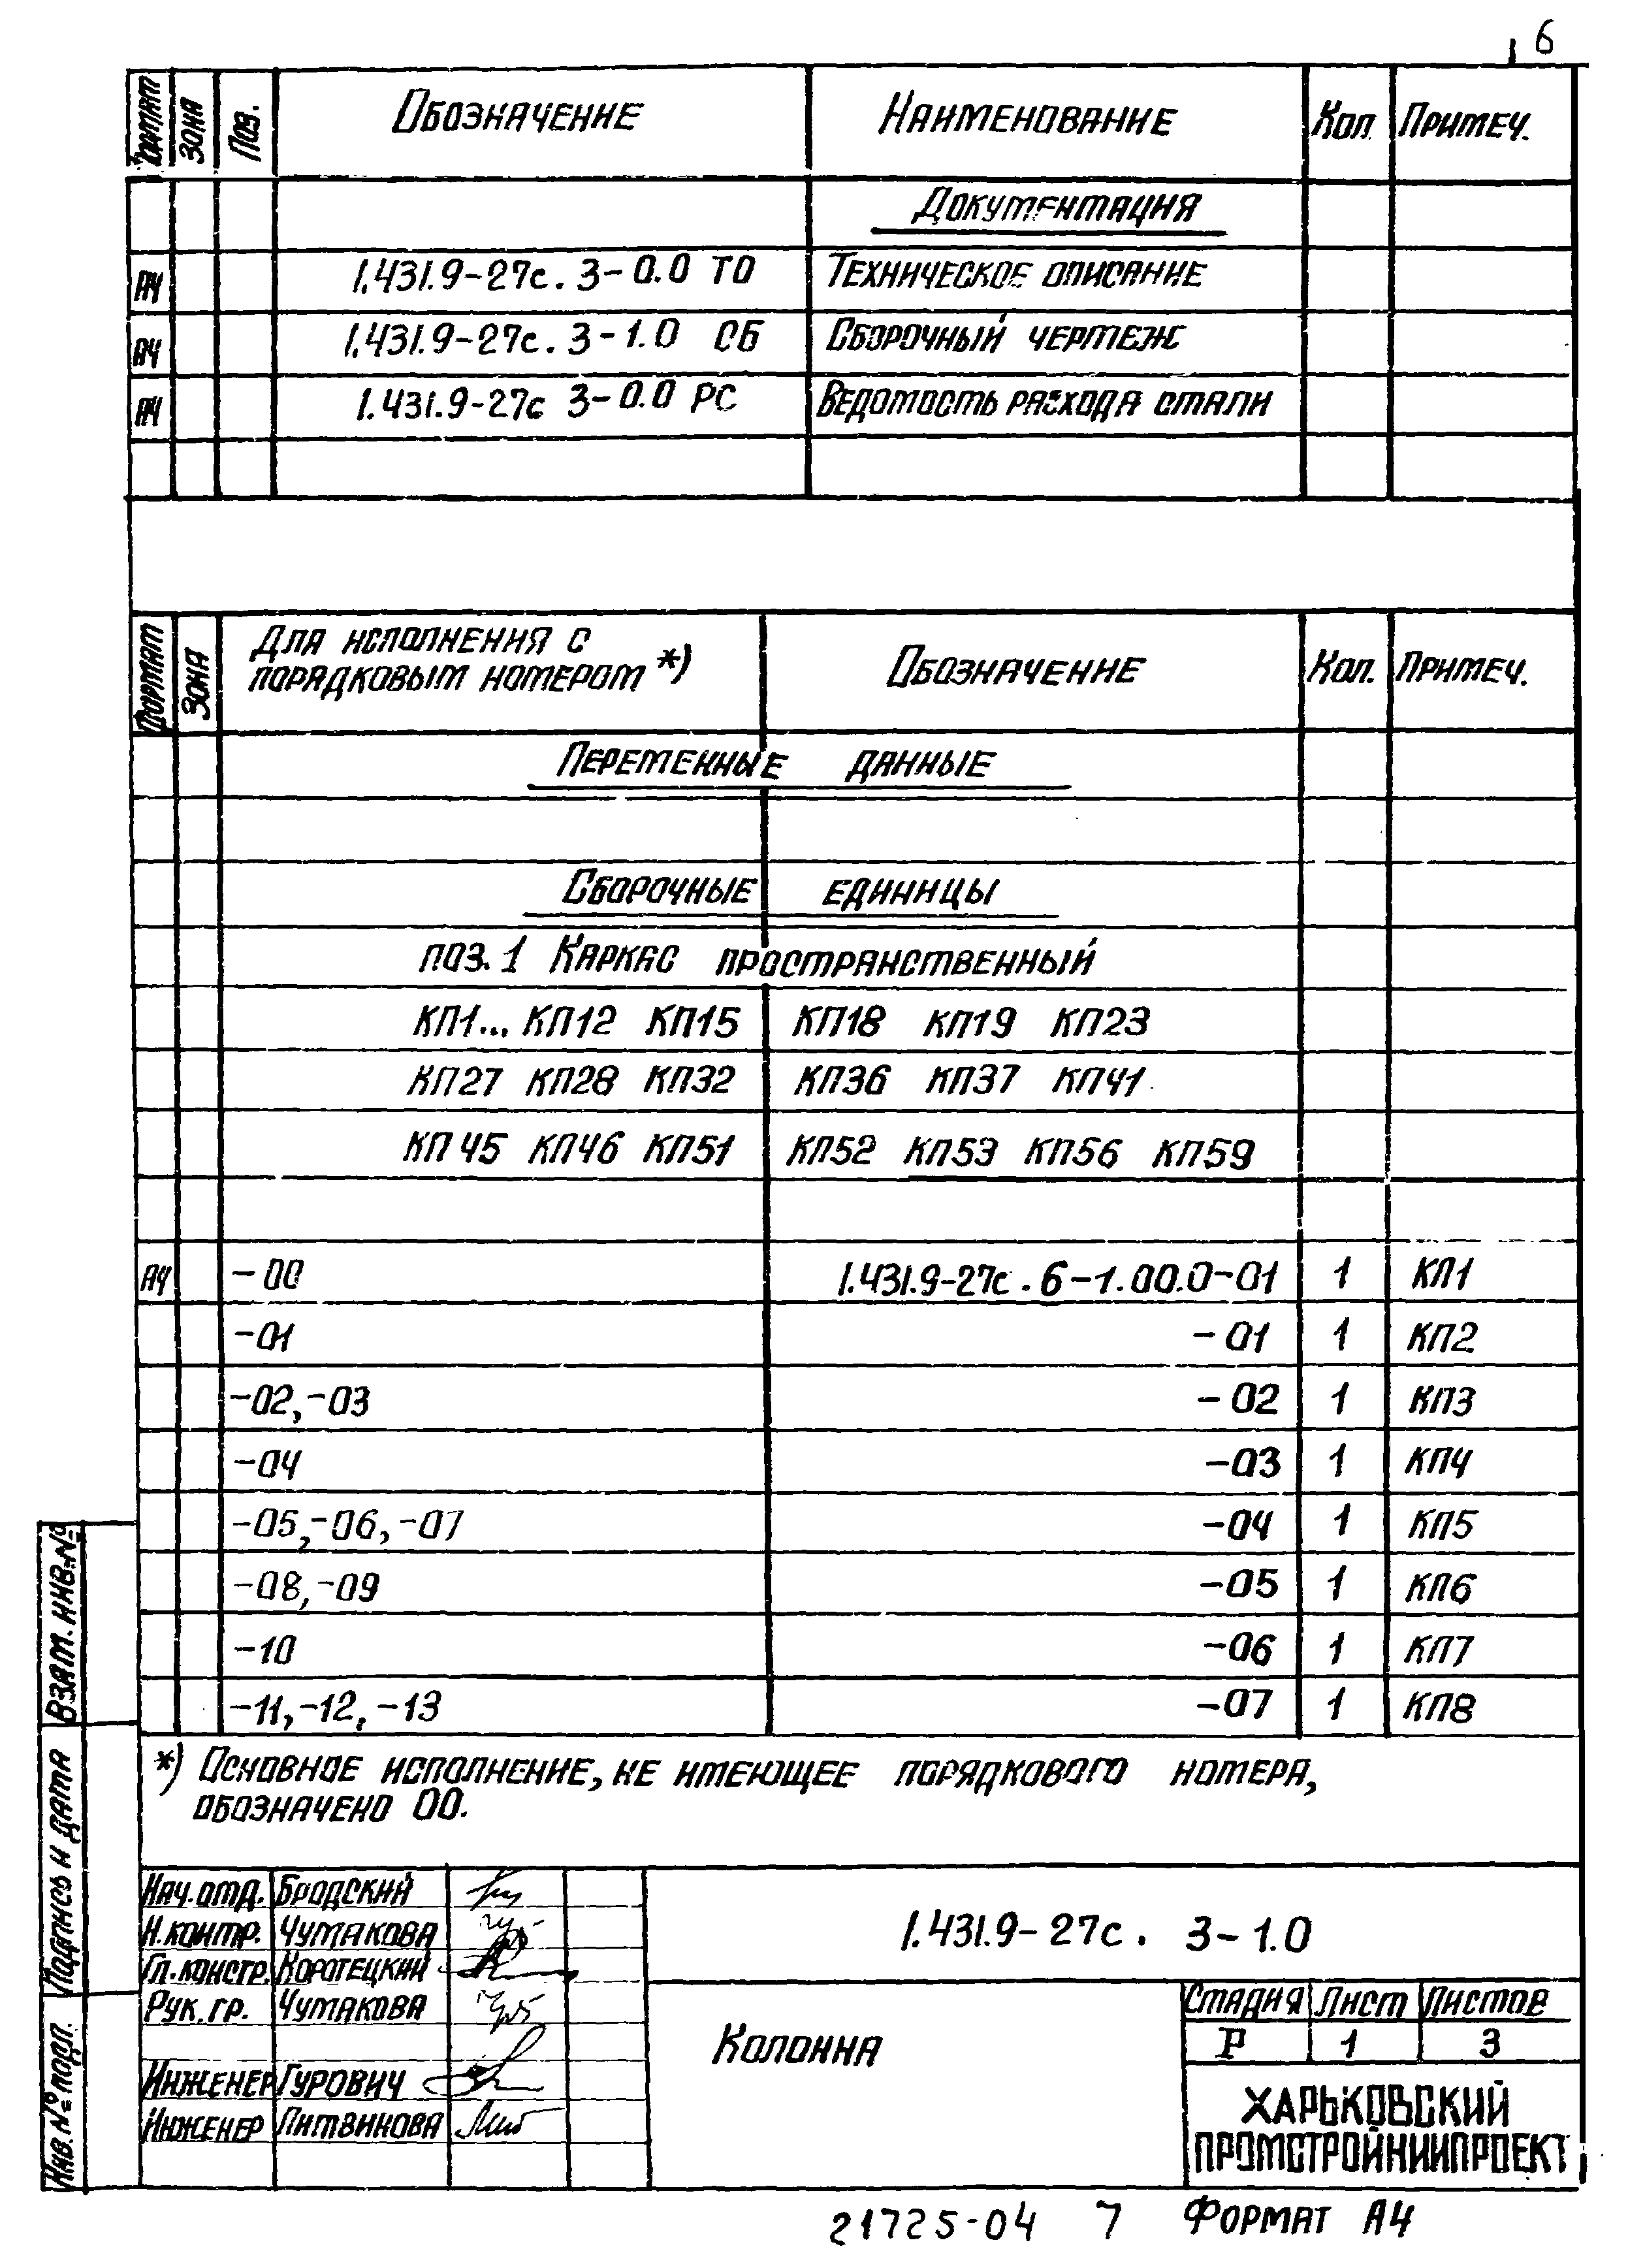 6
Формат Зона Поз. Обозначение Наименование Кол. Примеч.
Документация
А4 1.431.9-27с.3-0.0 ТО Техническое описание
А4 1.431.9-27с.3-1.0 СБ Сборочный чертеж
А4 1.431.9-27с 3-0.0 РС Ведомость расхода стали
Формат Зона Для исполнения с порядковым номером *) Обозначение Кол. Примеч.
Переменные данные
Сборочные единицы
поз. 1 Каркас пространственный
КП1... КП12 КП15 КП18 КП19 КП23
КП27 КП28 КП32 КП36 КП37 КП41
КП45 КП46 КП51 КП52 КП53 КП56 КП59
А4 -00 1.431.9-27с.6-1.00.0-01 1 КП1
-01 -01 1 КП2
-02,-03 -02 1 КП3
-04 -03 1 КП4
-05,-06,-07 -04 1 КП5
-08,-09 -05 1 КП6
-10 -06 1 КП7
-11,-12,-13 -07 1 КП8
*) Основное исполнение, не имеющее порядкового номера,
обозначено 00.
Взам. инв. №
Подпись и дата
Инв. № подл.
Нач. отд. Бродский
Н. контр. Чумакова
Гл. констр. Коротецкий
Рук. гр. Чумакова
Инженер Гурович
Инженер Литвинова
1.431.9-27с. 3-1.0
Колонна
Стадия Лист Листов
Р 1 3
ХАРЬКОВСКИЙ
ПРОМСТРОЙНИИПРОЕКТ
21725-04 7 Формат А4